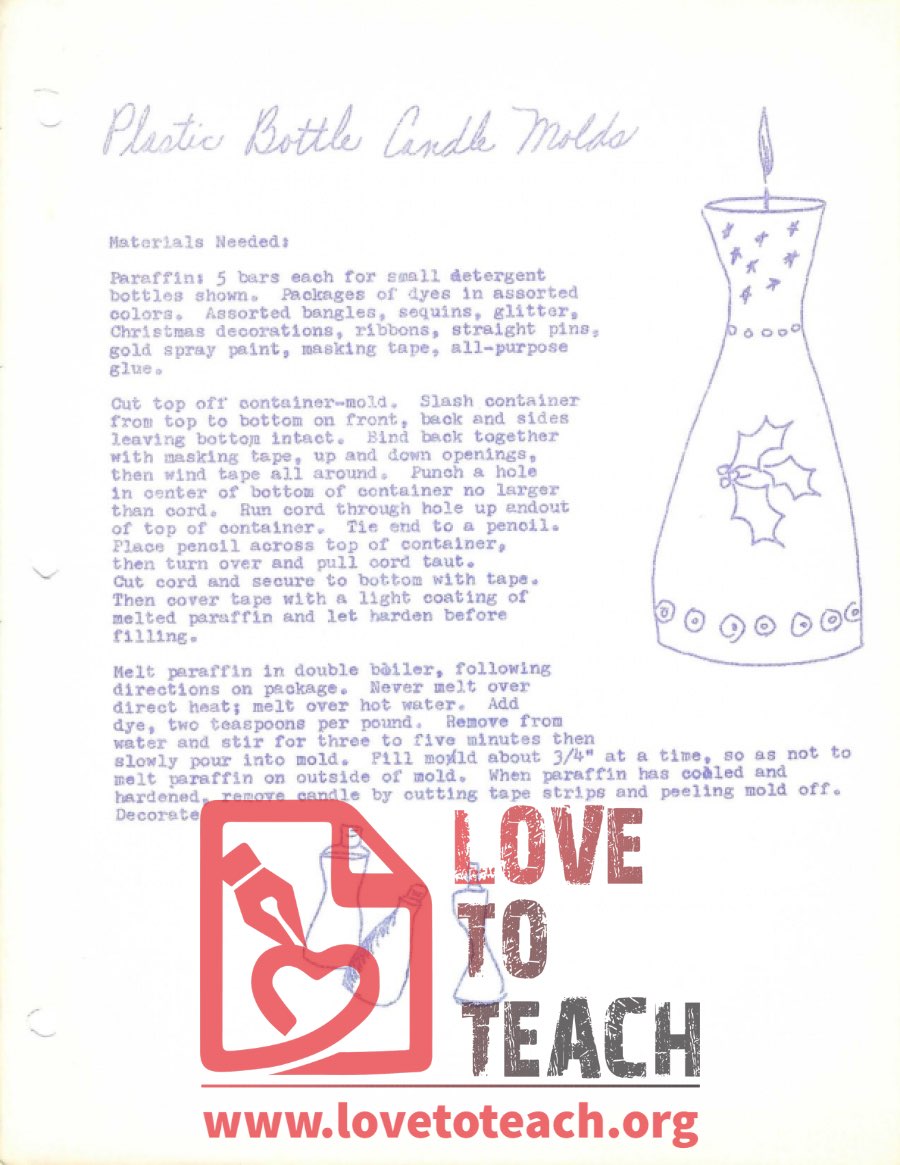 Plastic Bottle Candle Molds
Materials Needed:
Paraffin: 5 bars each for small detergent
bottles shown. Packages of dyes in assorted
colors. Assorted bangles, sequins, glitter,
Christmas decorations, ribbons, straight pins,
gold spray paint, masking tape, all-purpose
glue.
Cut top off container-mold. Slash container
from top to bottom on front, back and sides
leaving bottom intact. Bind back together
with masking tape, up and down openings,
then wind tape all around. Punch a hole
in center of bottom of container no larger
than cord. Run cord through hole up andout
of top of container. Tie end to a pencil.
Place pencil across top of container,
then turn over and pull cord taut.
Cut cord and secure to bottom with tape.
Then cover tape with a light coating of
melted paraffin and let harden before
filling.
Melt paraffin in double boiler, following
directions on package. Never melt over
direct heat; melt over hot water. Add
dye, two teaspoons per pound. Remove from
water and stir for three to five minutes then
slowly pour into mold. Fill mould about 3/4" at a time, so as not to
melt paraffin on outside of mold. When paraffin has cooled and
hardened, remove candle by cutting tape strips and peeling mold off.
Decorate
LOVE
TO
TEACH
www.lovetoteach.org